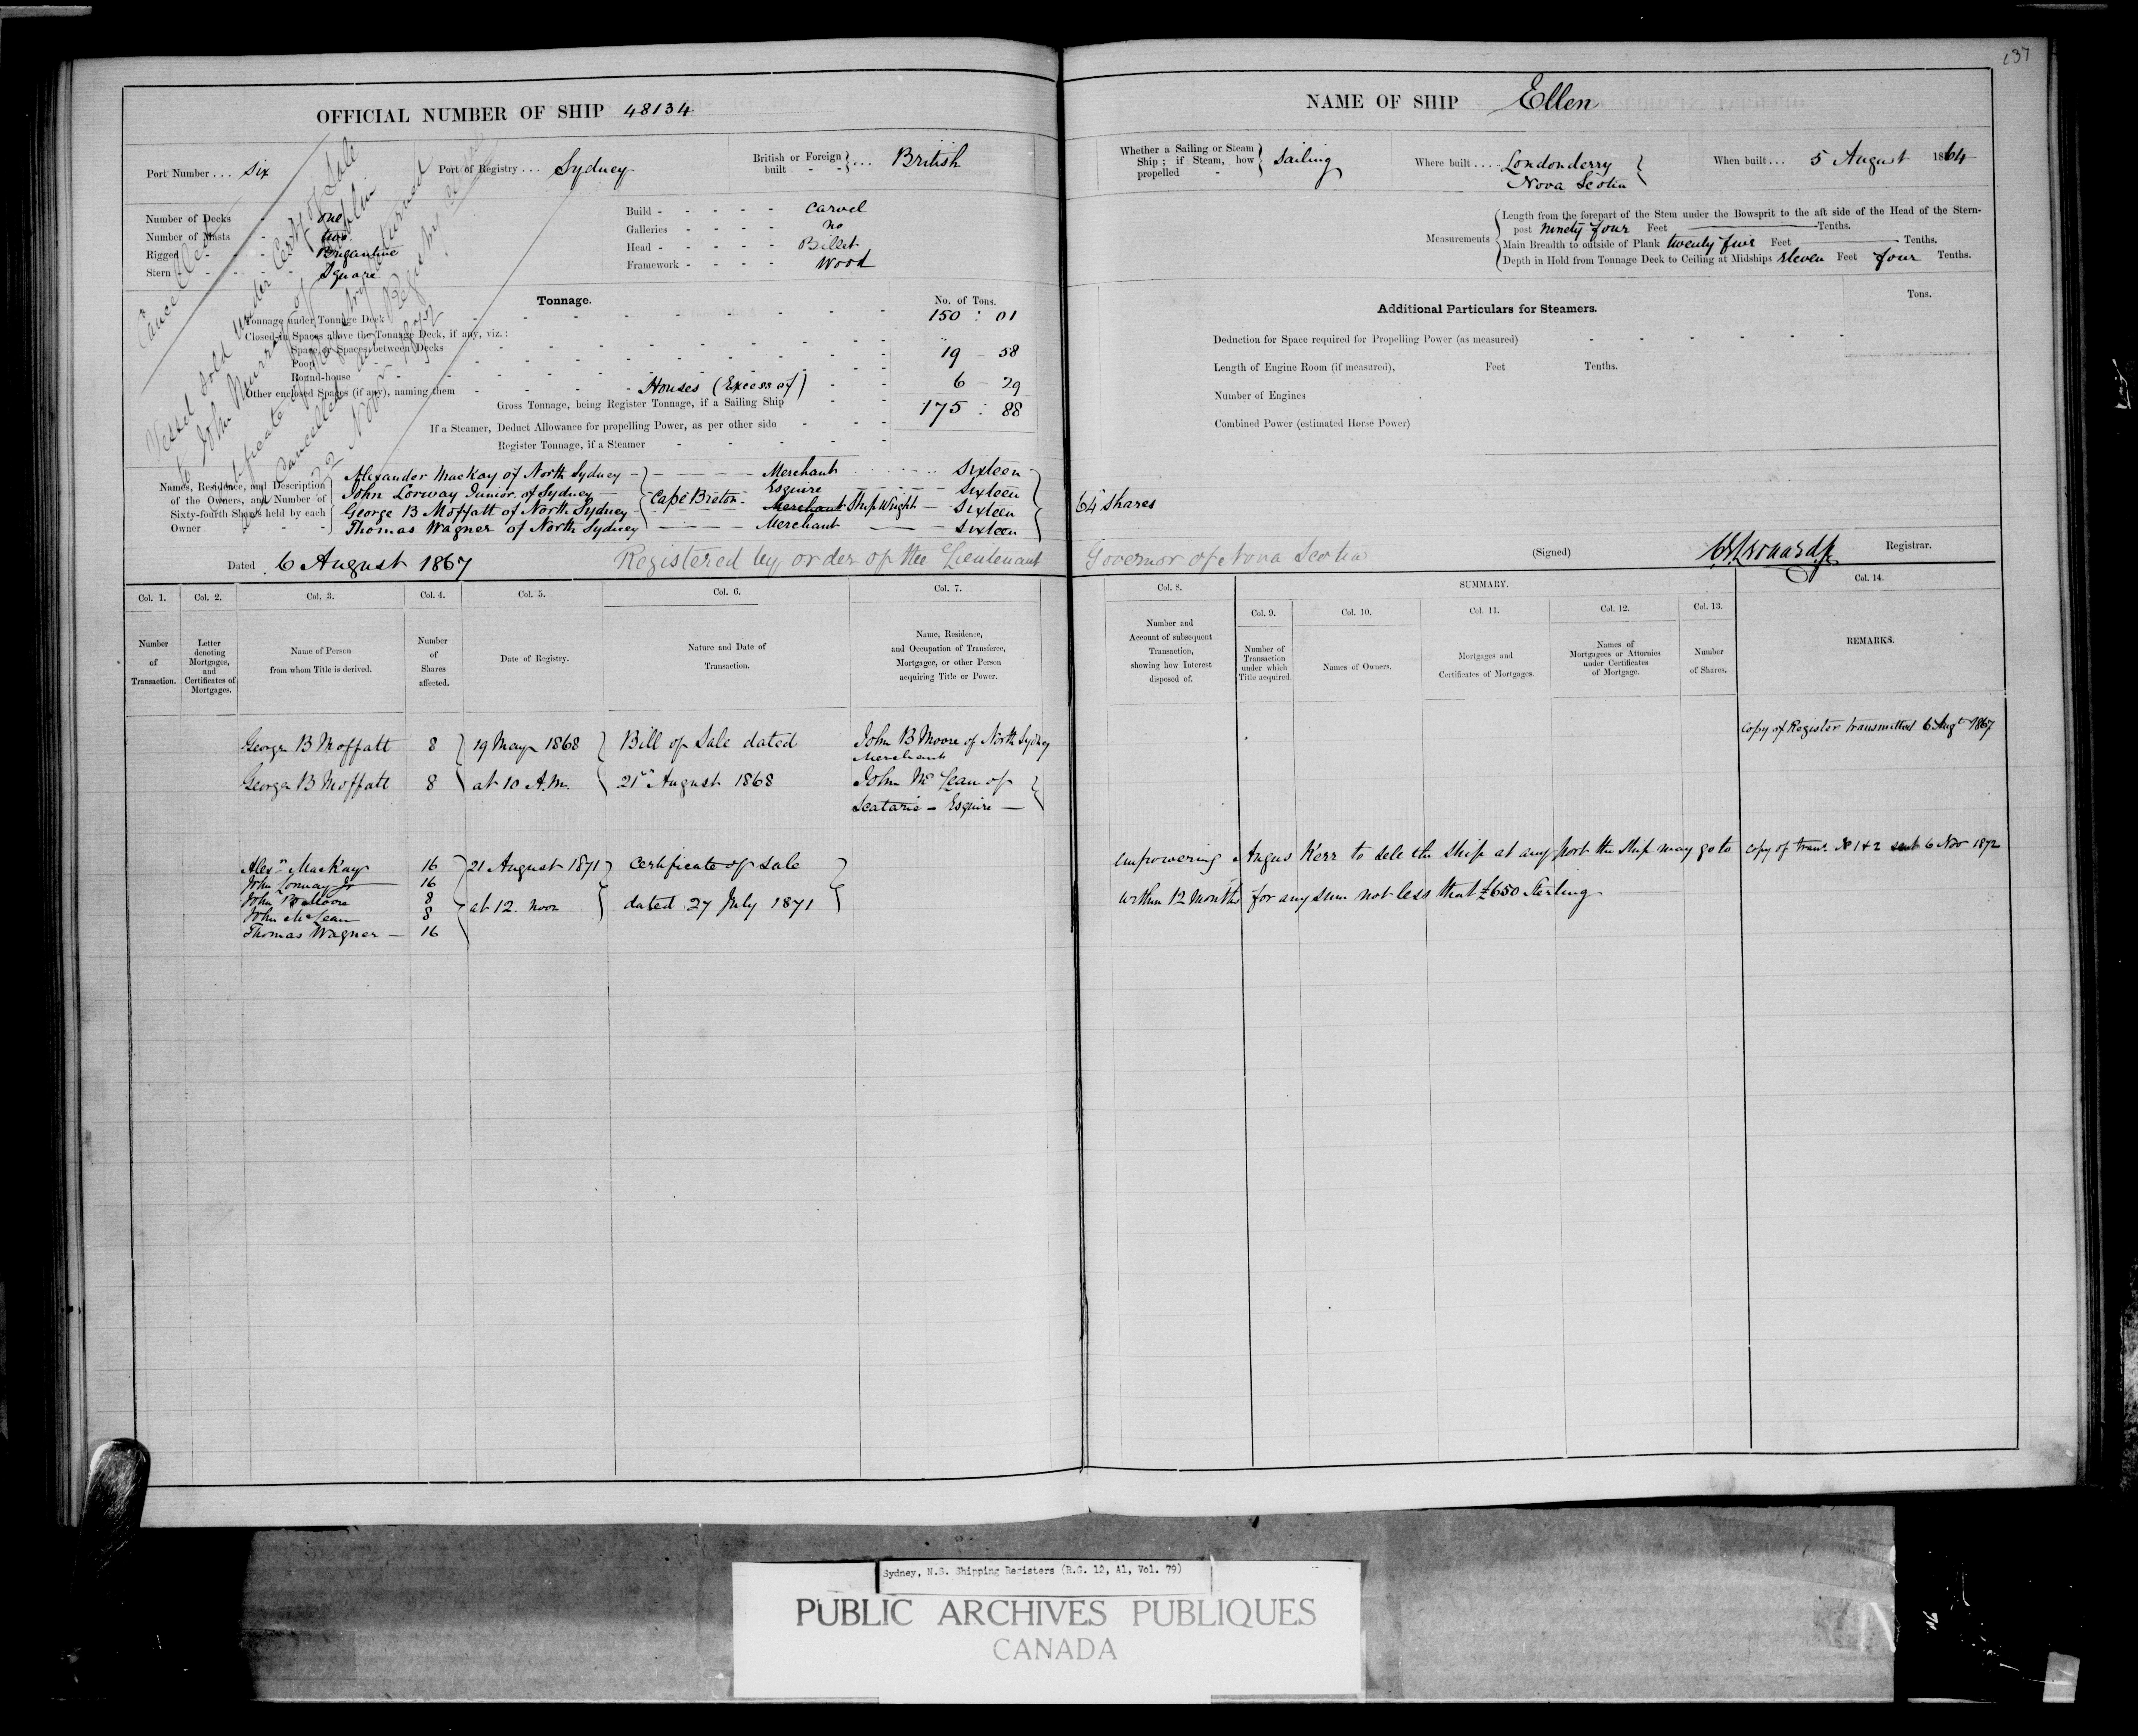 137
OFFICIAL NUMBER OF SHIP 48134
NAME OF SHIP Ellen
Port Number ... Six
Port of Registry ... Sydney
British or Foreign built - - } ... British
Whether a Sailing or Steam Ship ; if Steam, how propelled - } Sailing
Where built .... Londonderry Nova Scotia
When built ... 5 August 1864
Number of Decks - one
Number of Masts - two
Rigged - - - Brigantine
Stern - - - - Square
Build - - - - - Carvel
Galleries - - - - No
Head - - - - - Billet
Framework - - - - Wood
Measurements
Length from the forepart of the Stem under the Bowsprit to the aft side of the Head of the Stern-
post ninety four Feet Tenths.
Main Breadth to outside of Plank twenty five Feet Tenths.
Depth in Hold from Tonnage Deck to Ceiling at Midships eleven Feet four Tenths.
Cancelled
Vessel sold under Certf of Sale
to John Murray of
Certificate of Registry returned
and cancelled and Registry closed
Nov 1872
Tonnage.
No. of Tons.
Tonnage under Tonnage Deck 150 : 01
Closed-in Spaces above the Tonnage Deck, if any, viz. :
Space or Spaces between Decks
Poop 19 - 58
Round-house
Other enclosed Spaces (if any), naming them Houses (Excess of) 6 - 29
Gross Tonnage, being Register Tonnage, if a Sailing Ship 175 : 88
If a Steamer, Deduct Allowance for propelling Power, as per other side
Register Tonnage, if a Steamer
Additional Particulars for Steamers.
Tons.
Deduction for Space required for Propelling Power (as measured)
Length of Engine Room (if measured), Feet Tenths.
Number of Engines
Combined Power (estimated Horse Power)
Names, Residence, and Description of the Owners, and Number of Sixty-fourth Shares held by each Owner
Alexander MacKay of North Sydney - Merchant Sixteen
John Lorway Junior of Sydney - Cape Breton - Esquire Sixteen
George B Moffatt of North Sydney - Merchant Ship Wright - Sixteen
Thomas Wagner of North Sydney Merchant Sixteen
64 Shares
Dated 6 August 1867
Registered by order of the Lieutenant Governor of Nova Scotia
(Signed)
Registrar.
Col. 1.
Col. 2.
Col. 3.
Col. 4.
Col. 5.
Col. 6.
Col. 7.
Col. 8.
SUMMARY.
Col. 9.
Col. 10.
Col. 11.
Col. 12.
Col. 13.
Col. 14.
Number of Transaction.
Letter denoting Mortgages, and Certificates of Mortgages.
Name of Person from whom Title is derived.
Number of Shares affected.
Date of Registry.
Nature and Date of Transaction.
Name, Residence, and Occupation of Transferee, Mortgagee, or other Person acquiring Title or Power.
Number and Account of subsequent Transaction, showing how Interest disposed of.
Number of Transaction under which Title acquired.
Names of Owners.
Mortgages and Certificates of Mortgages.
Names of Mortgagees or Attornies under Certificates of Mortgage.
Number of Shares.
REMARKS.
Copy of Register transmitted 6 Augt 1867
George B Moffatt 8 19 May 1868 Bill of Sale dated John B Moore of North Sydney
Merchant
George B Moffatt 8 at 10 A.M. 21st August 1868 John McLean of
Scatarie - Esquire -
Alexr MacKay 16 21 August 1871 Certificate of Sale empowering Angus Kerr to sell the Ship at any port the Ship may go to copy of trans. No 1 & 2 sent 6 Nov 1872
John Lorway Jr 16
John B Moore 8 at 12 noon dated 27 July 1871 within 12 months for any sum not less that £650 Sterling
John McLean 8
Thomas Wagner - 16
Sydney, N.S. Shipping Registers (R.G. 12, A1, Vol. 79)
PUBLIC ARCHIVES PUBLIQUES
CANADA